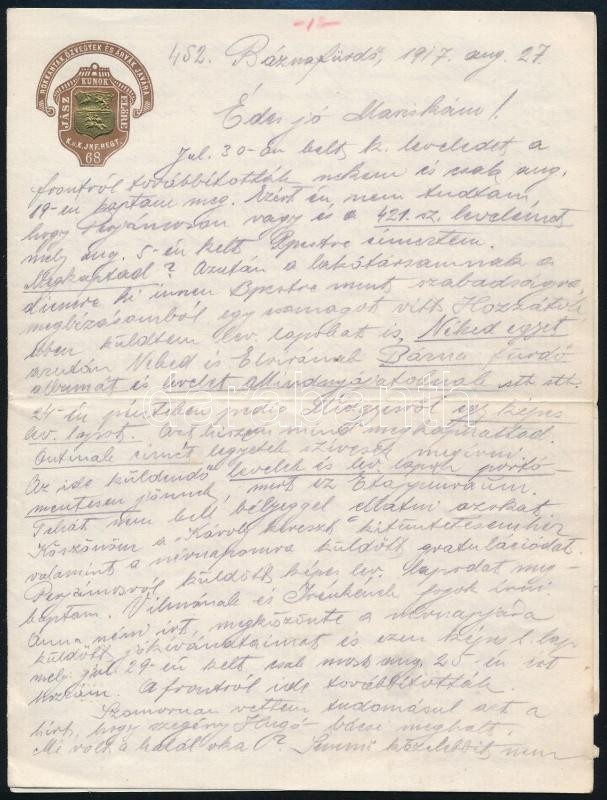 -1-
ROKKANTAK ÖZVEGYEK ÉS ÁRVÁK JAVÁRA
JÁSZ KUNOK EZREDE
K.u.K. JNF. REGT.
68
452. Báznafürdő, 1917. aug. 27.
Édes jó Mariskám!
Jul. 30-án kelt k. leveledet a
frontról továbbították nekem és csak aug.
19-én kaptam meg. Ezért én nem tudtam,
hogy Perjámoson vagy és a 421. sz. levelemet
mely aug. 5-én kelt Bpestre címeztem.
Megkaptad? Azután a lakótársamnak a
dienere ki innen Bpestre ment szabadságra,
megbízásomból egy csomagot vitt Hozzátok
Ebben küldtem lev. lapokat is, Néked egyet
azután Neked és Elvirának Bázna fürdő
albumát és levelet Mindnyájatoknak stb. stb.
24-én pénteken pedig egy képes
lev. lapot. Azt hiszem mind megkaptad.
címét legyetek szívesek megírni.
Az ide küldendő levelek és lev. lapok portó-
mentesen jönnek, mert ez Etappenraum.
Tehát nem kell bélyeggel ellátni azokat.
Köszönöm a "Károly kereszt" kitüntetésemhez
valamint a névnapomra küldött gratulációdat.
Perjámosról küldött képes lev. lapodat meg-
kaptam. Vilmának és Irénkének fogok írni.
Anna néni írt, megköszönte a névnapjára
küldött jókívánataimat és ezen képes l. lap
mely jul. 29-én kelt csak most aug. 25-én ért
hozzám. A frontról ide továbbították.
Szomorúan vettem tudomásul azt a
hírt, hogy szegény Hugó bácsi meghalt.
Mi volt a halál oka? Semmi közelebbit nem